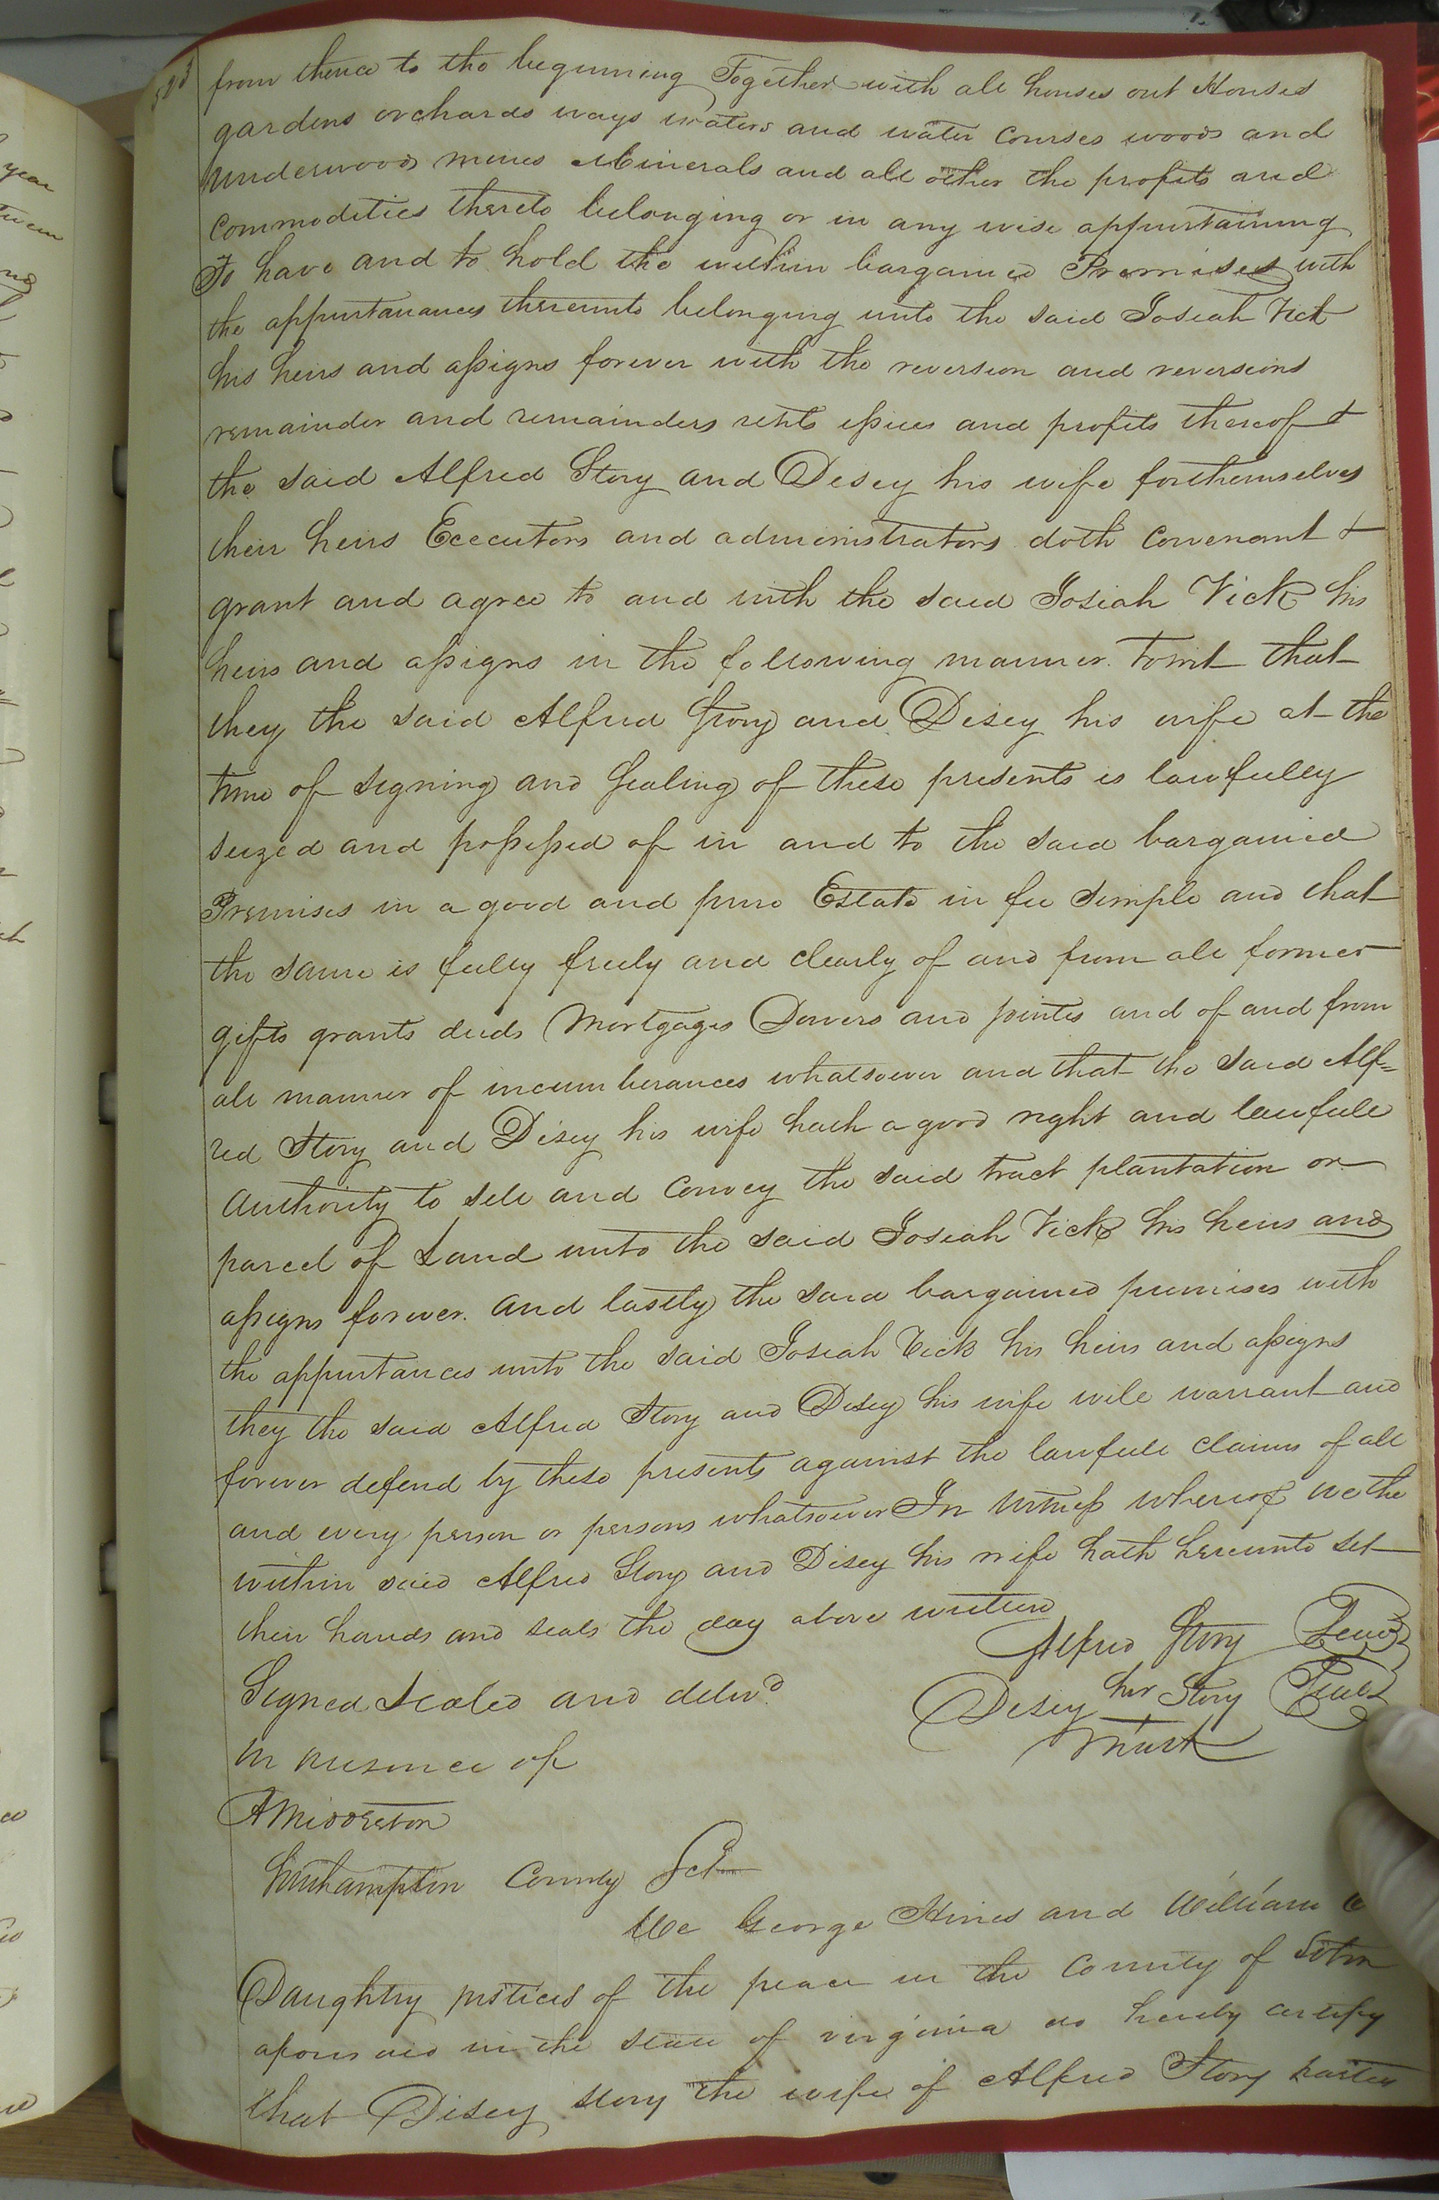 from thence to the beginning Together with all houses out Houses
gardens orchards ways waters and water courses woods and
underwoods mines Minerals and all other the profits and
commodities thereto belonging or in any wise appurtaining
To have and to hold the within bargained Premises with
the appurtanances thereunto belonging unto the said Josiah Vick
his heirs and assigns forever with the reversion and reversions
remainder and remainders rents issues and profits thereof &
the said Alfred Story and Disey his wife for themselves
their heirs Executors and administrators doth covenant &
grant and agree to and with the said Josiah Vick his
heirs and assigns in the following manner. Towit that
they the said Alfred Story and Disey his wife at the
time of signing and sealing of these presents is lawfully
seized and possessed of in and to the said bargained
Premises in a good and pure Estate in fee simple and that
the same is fully freely and clearly of and from all former
gifts grants deeds Mortgages Dowers and jointes and of and from
all manner of incumberances whatsoever and that the said Alf=
red Story and Disey his wife hath a good right and lawfull
authority to sell and convey the said tract plantation or
parcel of Land unto the said Josiah Vick his heirs and
assigns forever. And lastly the said bargained premises with
the appurtances unto the said Josiah Vick his heirs and assigns
they the said Alfred Story and Disey his wife will warrant and
forever defend by these presents against the lawfull claims of all
and every person or persons whatsoever In witness whereof we the
within said Alfred Story and Disey his wife hath hereunto set
their hands and seals the day above written
Alfred Story Seal
Signed Sealed and delivd.
Disey her Story Seal
mark
in presence of
A Middleton
Southampton County Sct
We George Hines and William
Daughtry justices of the peace in the County of Soton
aforesaid in the state of virginia do hereby certify
that Disey Story the wife of Alfred Story parties